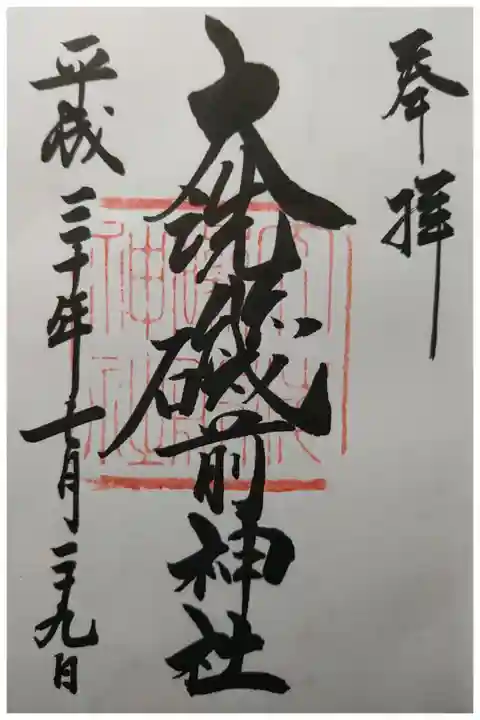 奉拝
大洗磯前神社
平成三十年十一月二十九日